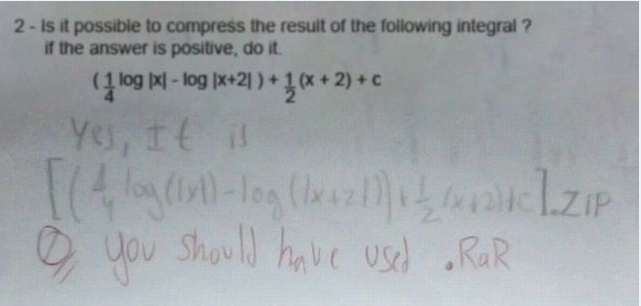 2 - Is it possible to compress the result of the following integral ?
if the answer is positive, do it.
( 1/4 log |x| - log |x+2| ) + 1/2 (x + 2) + c
Yes, It is
[( 1/4 log(|x|) - log(|x+2|)) + 1/2 (x+2)+c].ZIP
you should have used .RaR